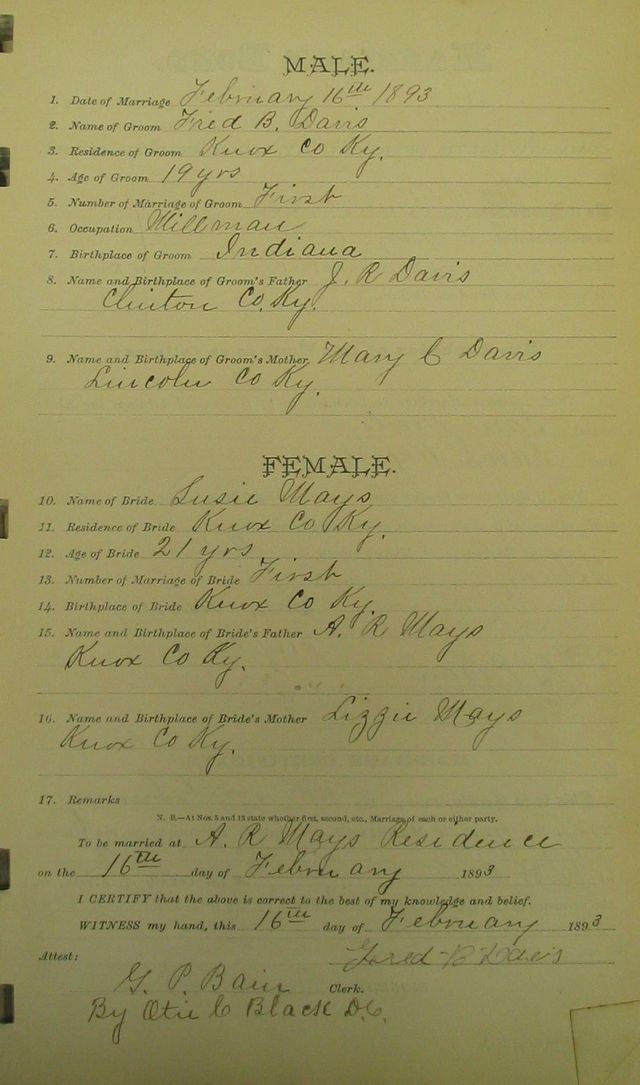 MALE.
1. Date of Marriage February 16th 1893
2. Name of Groom Fred B. Davis
3. Residence of Groom Knox Co Ky.
4. Age of Groom 19 yrs
5. Number of Marriage of Groom First
6. Occupation Millman
7. Birthplace of Groom Indiana
8. Name and Birthplace of Groom's Father J. R Davis
Clinton Co. Ky.
9. Name and Birthplace of Groom's Mother Mary C Davis
Lincoln Co Ky.
FEMALE.
10. Name of Bride Susie Mays
11. Residence of Bride Knox Co Ky.
12. Age of Bride 21 yrs
13. Number of Marriage of Bride First
14. Birthplace of Bride Knox Co Ky.
15. Name and Birthplace of Bride's Father A. R Mays
Knox Co Ky.
16. Name and Birthplace of Bride's Mother Lizzie Mays
Knox Co Ky.
17. Remarks
N. B.—At Nos. 5 and 13 state whether first, second, etc., Marriage of each or either party.
To be married at A. R Mays Residence
on the 16th day of February 1893
I CERTIFY that the above is correct to the best of my knowledge and belief.
WITNESS my hand, this 16th day of February 1893
Fred B Davis
Attest:
G. P. Bain Clerk.
By Otie C Black D.C.